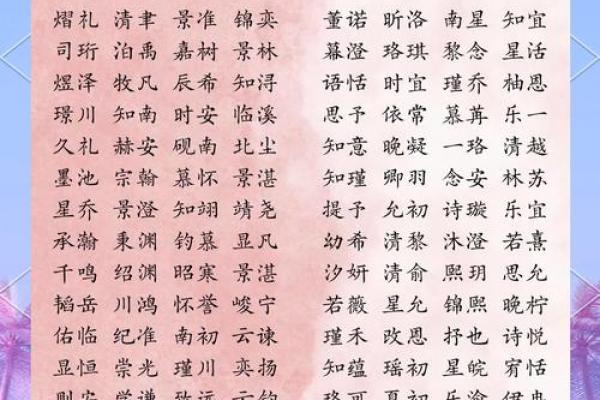 熠礼 清聿 景准 锦奕 董诺 昕洛 南星 知宜
司珩 泊禹 嘉树 景林 幕澄 珞琪 黎念 星活
煜泽 牧凡 辰希 知浔 语恬 时宜 瑾乔 柚恩
璟川 知南 时安 临溪 思予 依常 慕苒 乐一
久礼 赫安 砚南 北尘 知意 晚凝 一珞 清越
墨池 宗翰 慕怀 景湛 知瑾 卿羽 念安 林苏
星乔 景澄 知翊 靖尧 提予 允初 诗璇 乐宜
承瀚 秉渊 钧慕 显凡 幼希 清黎 沐澄 若熹
千鸣 绍渊 昭寒 景湛 汐妍 清俞 熙玥 思允
韬岳 川鸿 怀誉 峻宁 若薇 星允 锦熙 晚柠
佑临 纪准 南初 云谏 瑾禾 改恩 抒也 诗悦
显恒 崇光 瑾川 奕扬 知蕴 瑶初 星皖 宥恬
则安 学谦 致远 珞可 夏初 乐渝